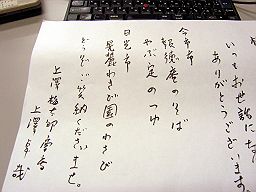 いつもお世話にな
ありがとうございます
今市市
報徳庵のそば
やぶ定のつゆ
日光市
鬼怒わさび園のわさび
どうぞご笑納くださいませ。
上澤佑
上澤卓哉